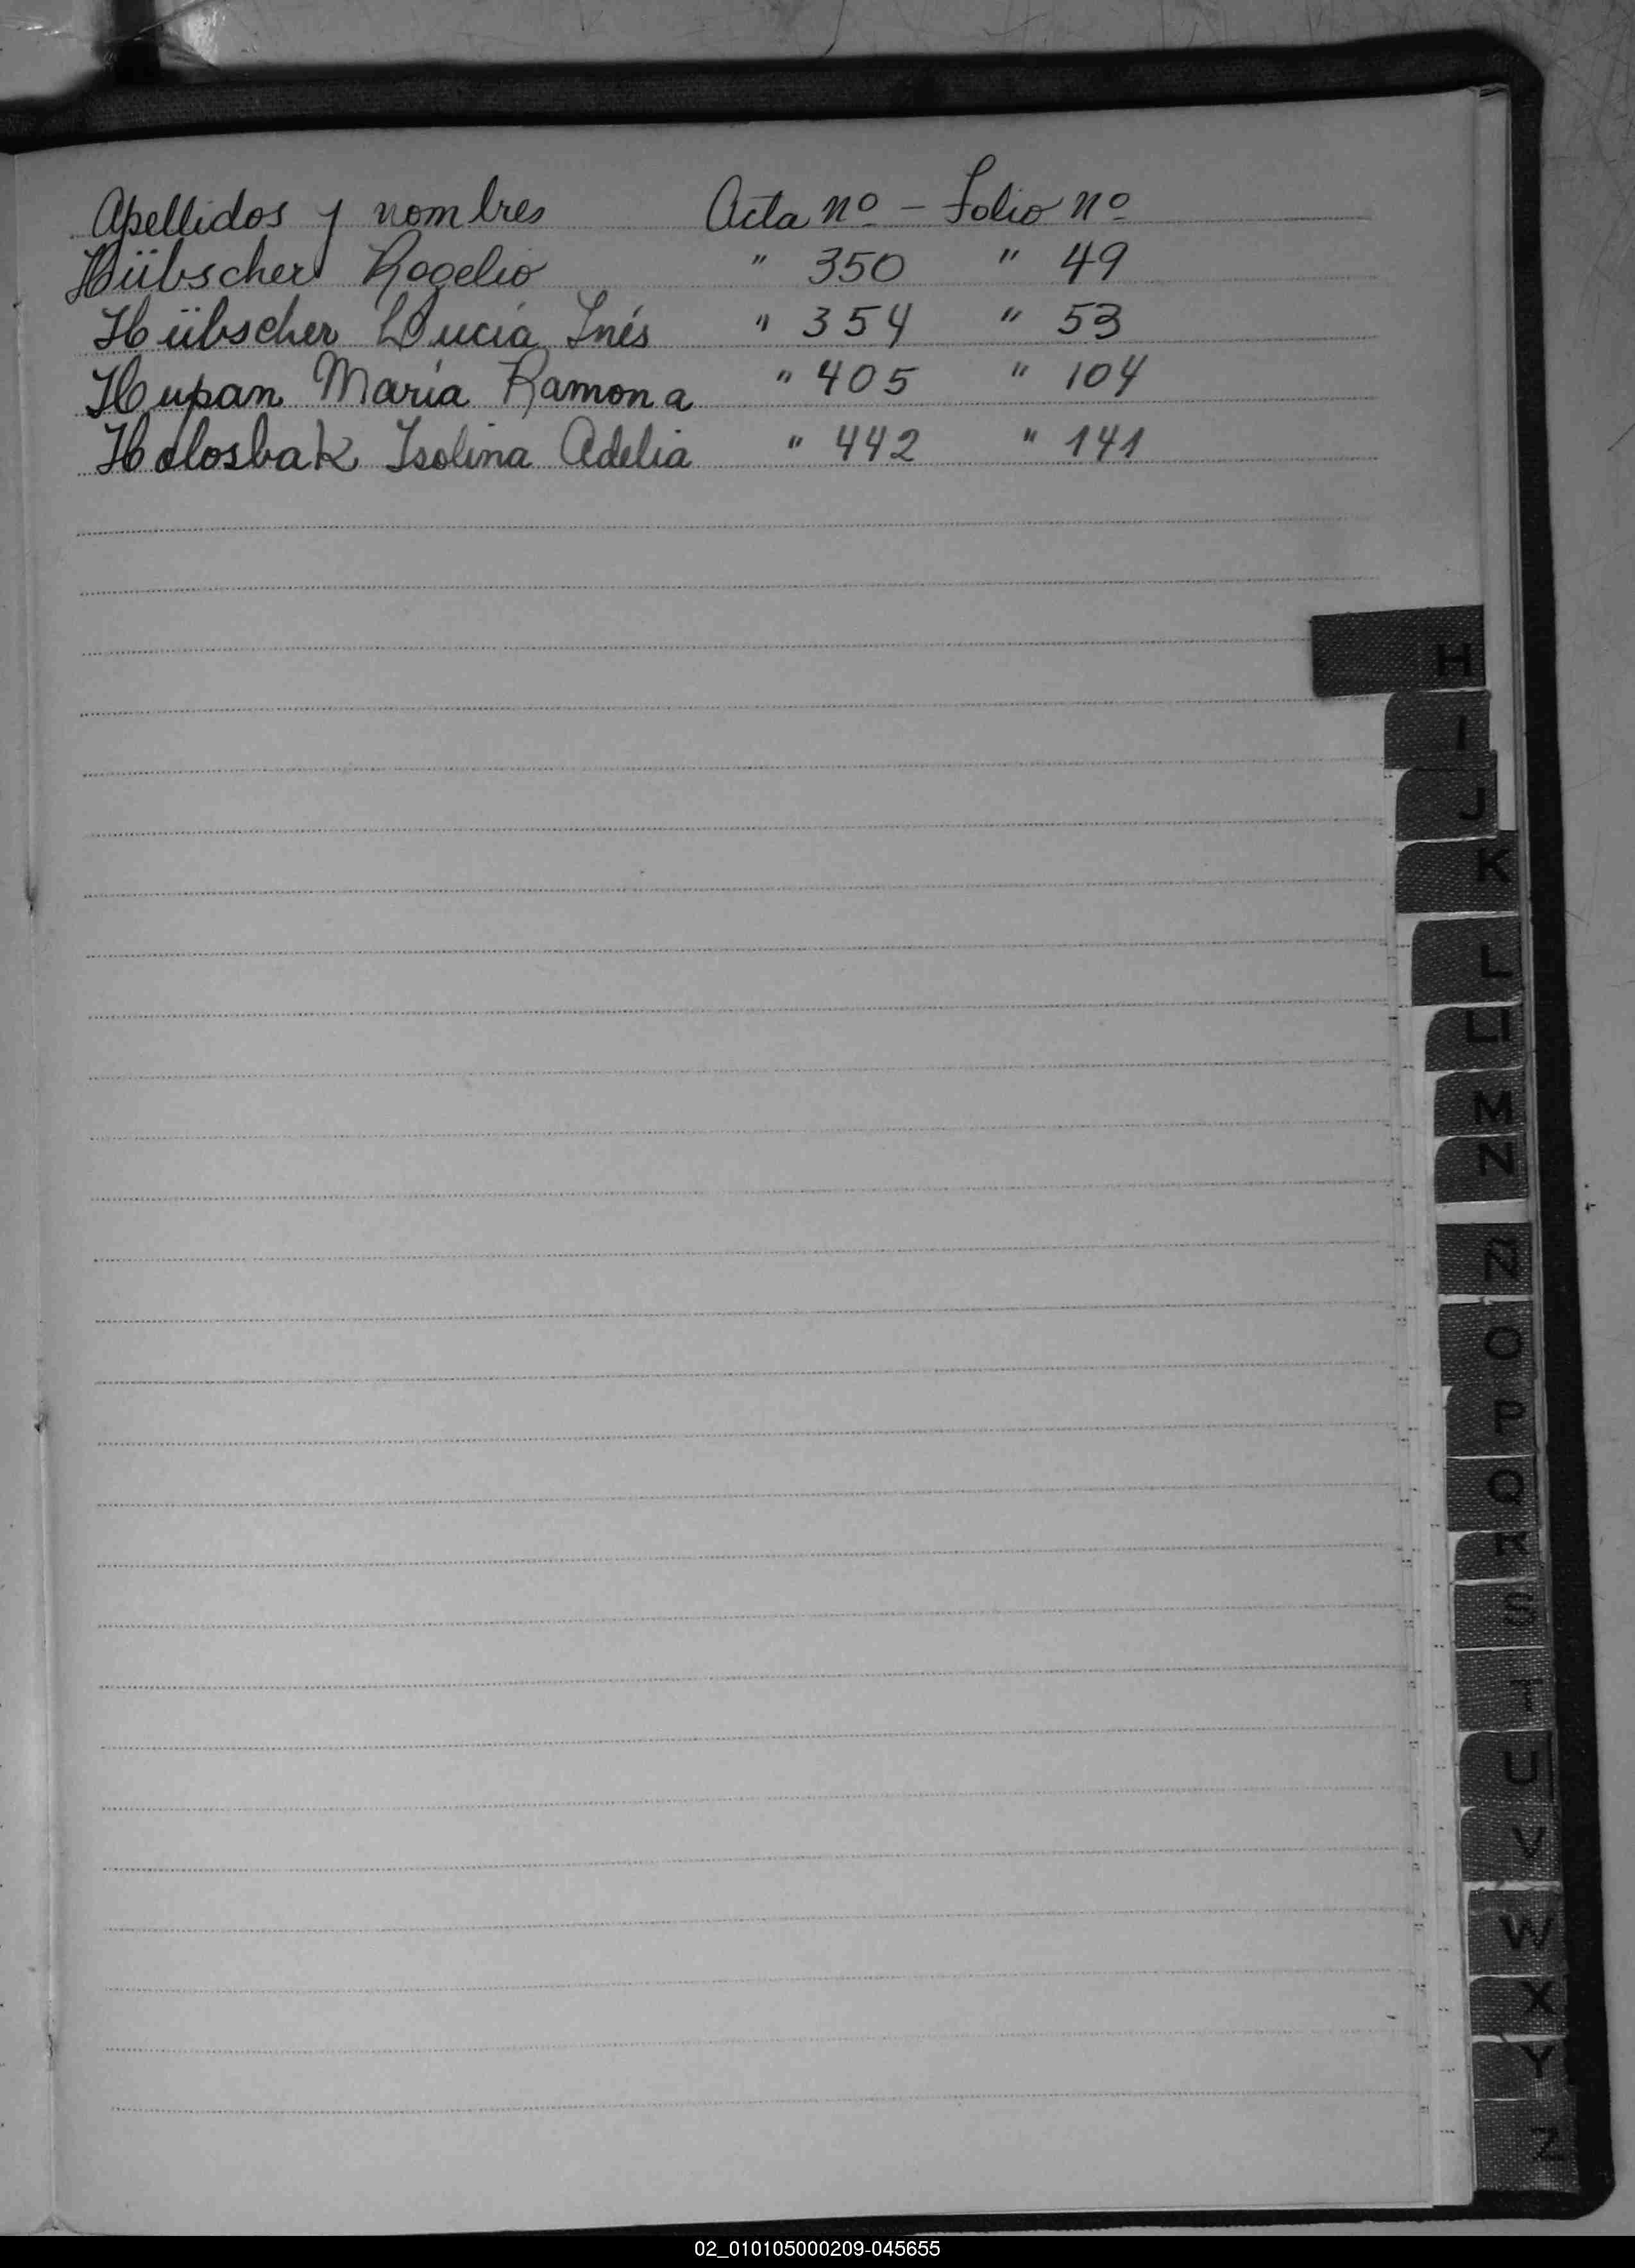 Apellidos y nombres Acta nº - Folio nº
Hübscher Rogelio " 350 " 49
Hübscher Lucía Inés " 354 " 53
Hupan María Ramona " 405 " 104
Holosbak Isolina Adelia " 442 " 141
H
I
J
K
L
Ll
M
N
Ñ
O
P
Q
R
S
T
U
V
W
X
Y
Z
02_010105000209-045655